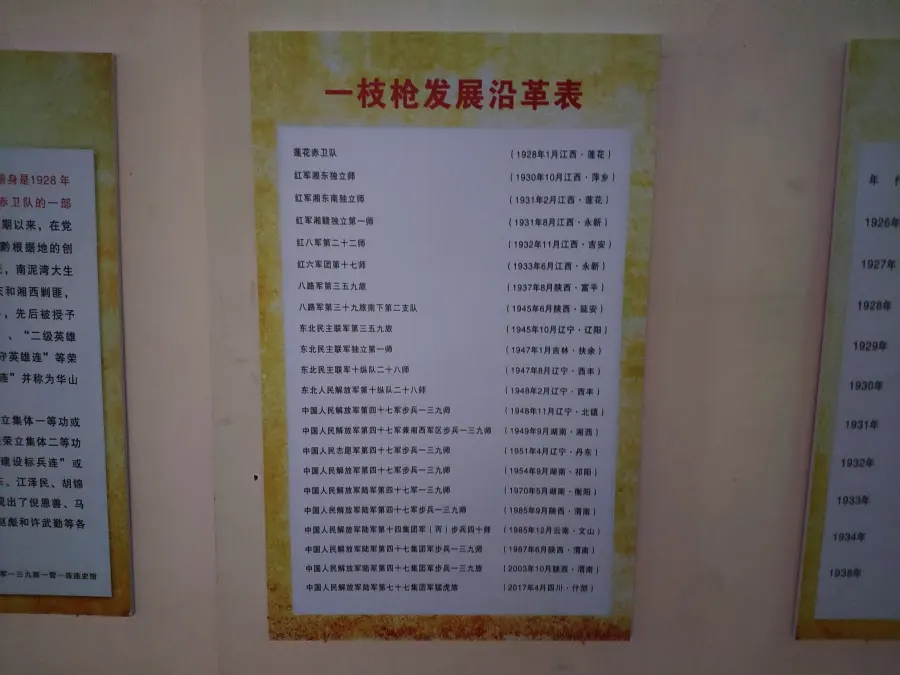 身是1928年
赤卫队的一部
期以来，在党
黔根据地的创
，南泥湾大生
和湘西剿匪，
，先后被授予
、“二级英雄
守英雄连”等荣
连”并称为华山
立集体一等功或
荣立集体二等功
建设标兵连”或
、江泽民、胡锦
现出了倪恩善、马
赵彪和许武勤等各
军一三九旅一营一连连史馆
一枝枪发展沿革表
莲花赤卫队 （1928年1月江西·莲花）
红军湘东独立师 （1930年10月江西·萍乡）
红军湘东南独立师 （1931年2月江西·莲花）
红军湘赣独立第一师 （1931年8月江西·永新）
红八军第二十二师 （1932年11月江西·吉安）
红六军团第十七师 （1933年6月江西·永新）
八路军第三五九旅 （1937年8月陕西·富平）
八路军第三十九旅南下第二支队 （1945年6月陕西·延安）
东北民主联军第三五九旅 （1945年10月辽宁·辽阳）
东北民主联军独立第一师 （1947年1月吉林·扶余）
东北民主联军十纵队二十八师 （1947年8月辽宁·西丰）
东北人民解放军第十纵队二十八师 （1948年2月辽宁·西丰）
中国人民解放军第四十七军步兵一三九师 （1948年11月辽宁·北镇）
中国人民解放军第四十七军兼湘西军区步兵一三九师 （1949年9月湖南·湘西）
中国人民志愿军第四十七军步兵一三九师 （1951年4月辽宁·丹东）
中国人民解放军第四十七军步兵一三九师 （1954年9月湖南·祁阳）
中国人民解放军陆军第四十七军一三九师 （1970年5月湖南·衡阳）
中国人民解放军陆军第四十七军步兵一三九师 （1985年9月陕西·渭南）
中国人民解放军陆军第十四集团军（丙）步兵四十师 （1985年12月云南·文山）
中国人民解放军陆军第四十七集团军步兵一三九师 （1987年6月陕西·渭南）
中国人民解放军陆军第四十七集团军步兵一三九旅 （2003年10月陕西·渭南）
中国人民解放军陆军第七十七集团军猛虎旅 （2017年4月四川·什邡）
年
1926年
1927年
1928年
1929年
1930年
1931年
1932年
1933年
1934年
1938年